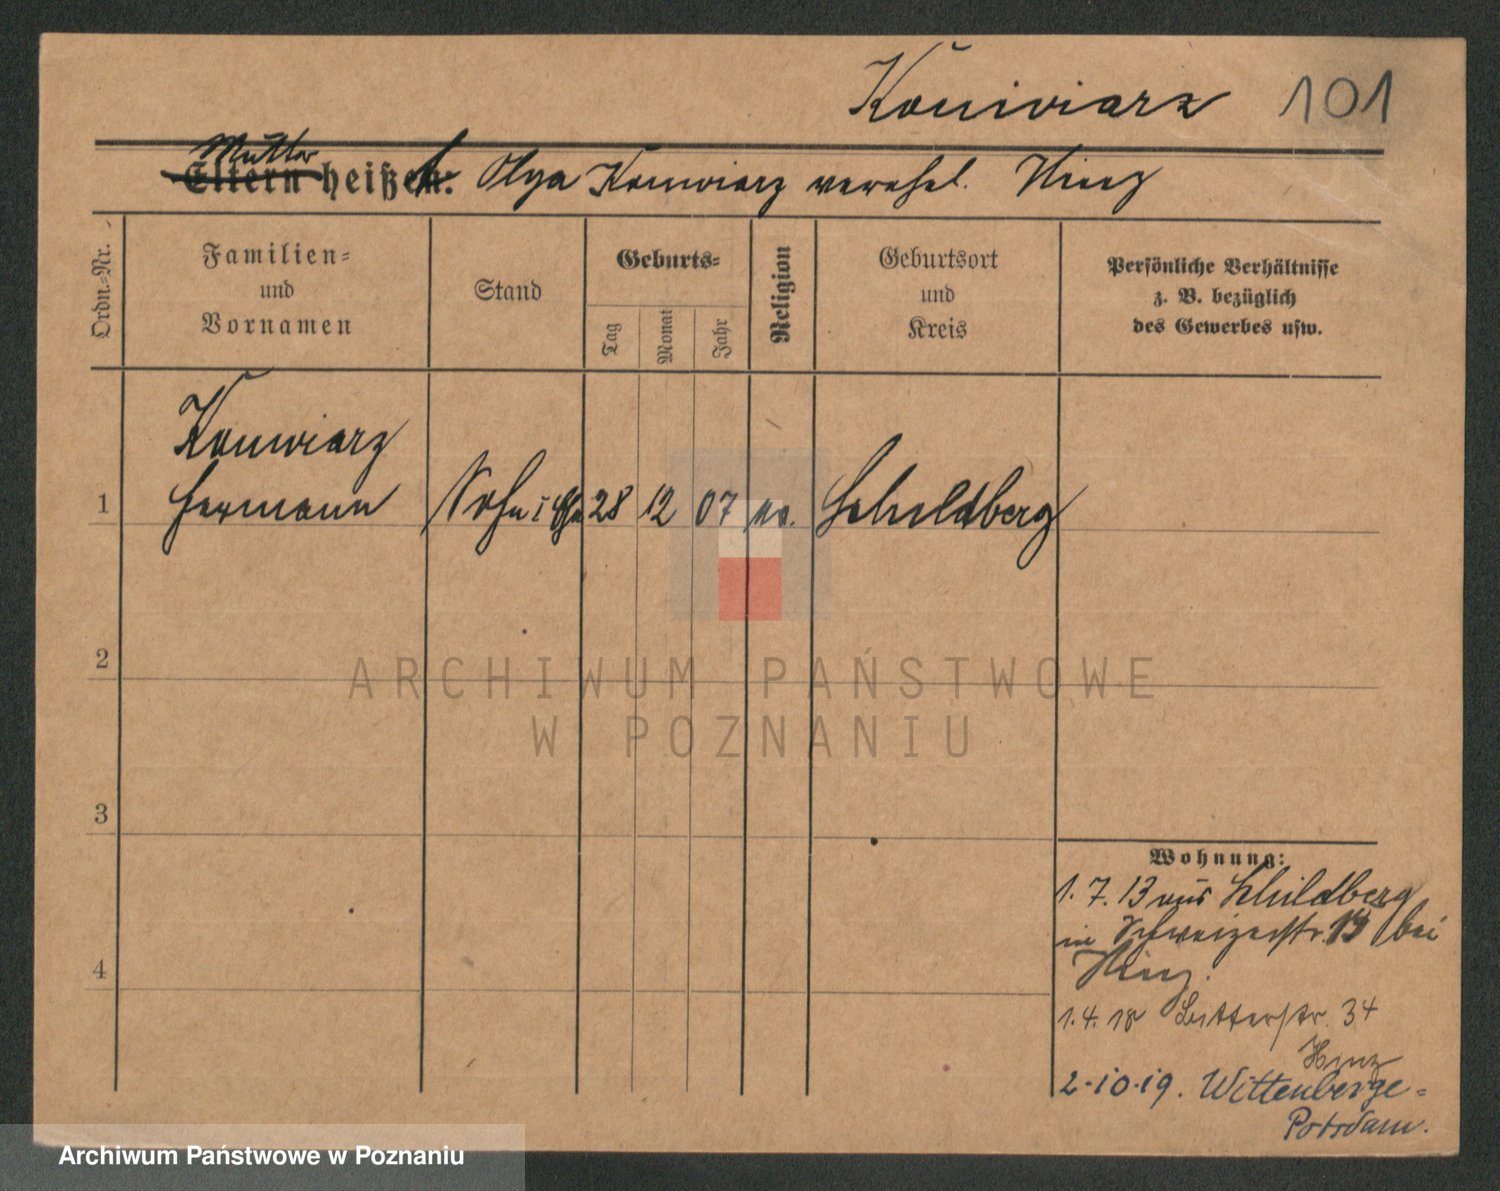 Konwiarz 101
Mutter
Eltern heißen. Olga Konwiarz verehel. Hinz
Ordn.-Nr.
Familien-
und
Vornamen
Stand
Geburts-
Tag
Monat
Jahr
Religion
Geburtsort
und
Kreis
Persönliche Verhältnisse
z. B. bezüglich
des Gewerbes usw.
Konwiarz
1 Hermann Sohn 28 12 07 ev. Schildberg
2
ARCHIWUM PAŃSTWOWE
W POZNANIU
3
4
Wohnung:
1.7.13 aus Schildberg
in Schweizerstr. bei
Hinz.
1.4.18 34
Hinz
2.10.19. Wittenberge-
Potsdam.
Archiwum Państwowe w Poznaniu